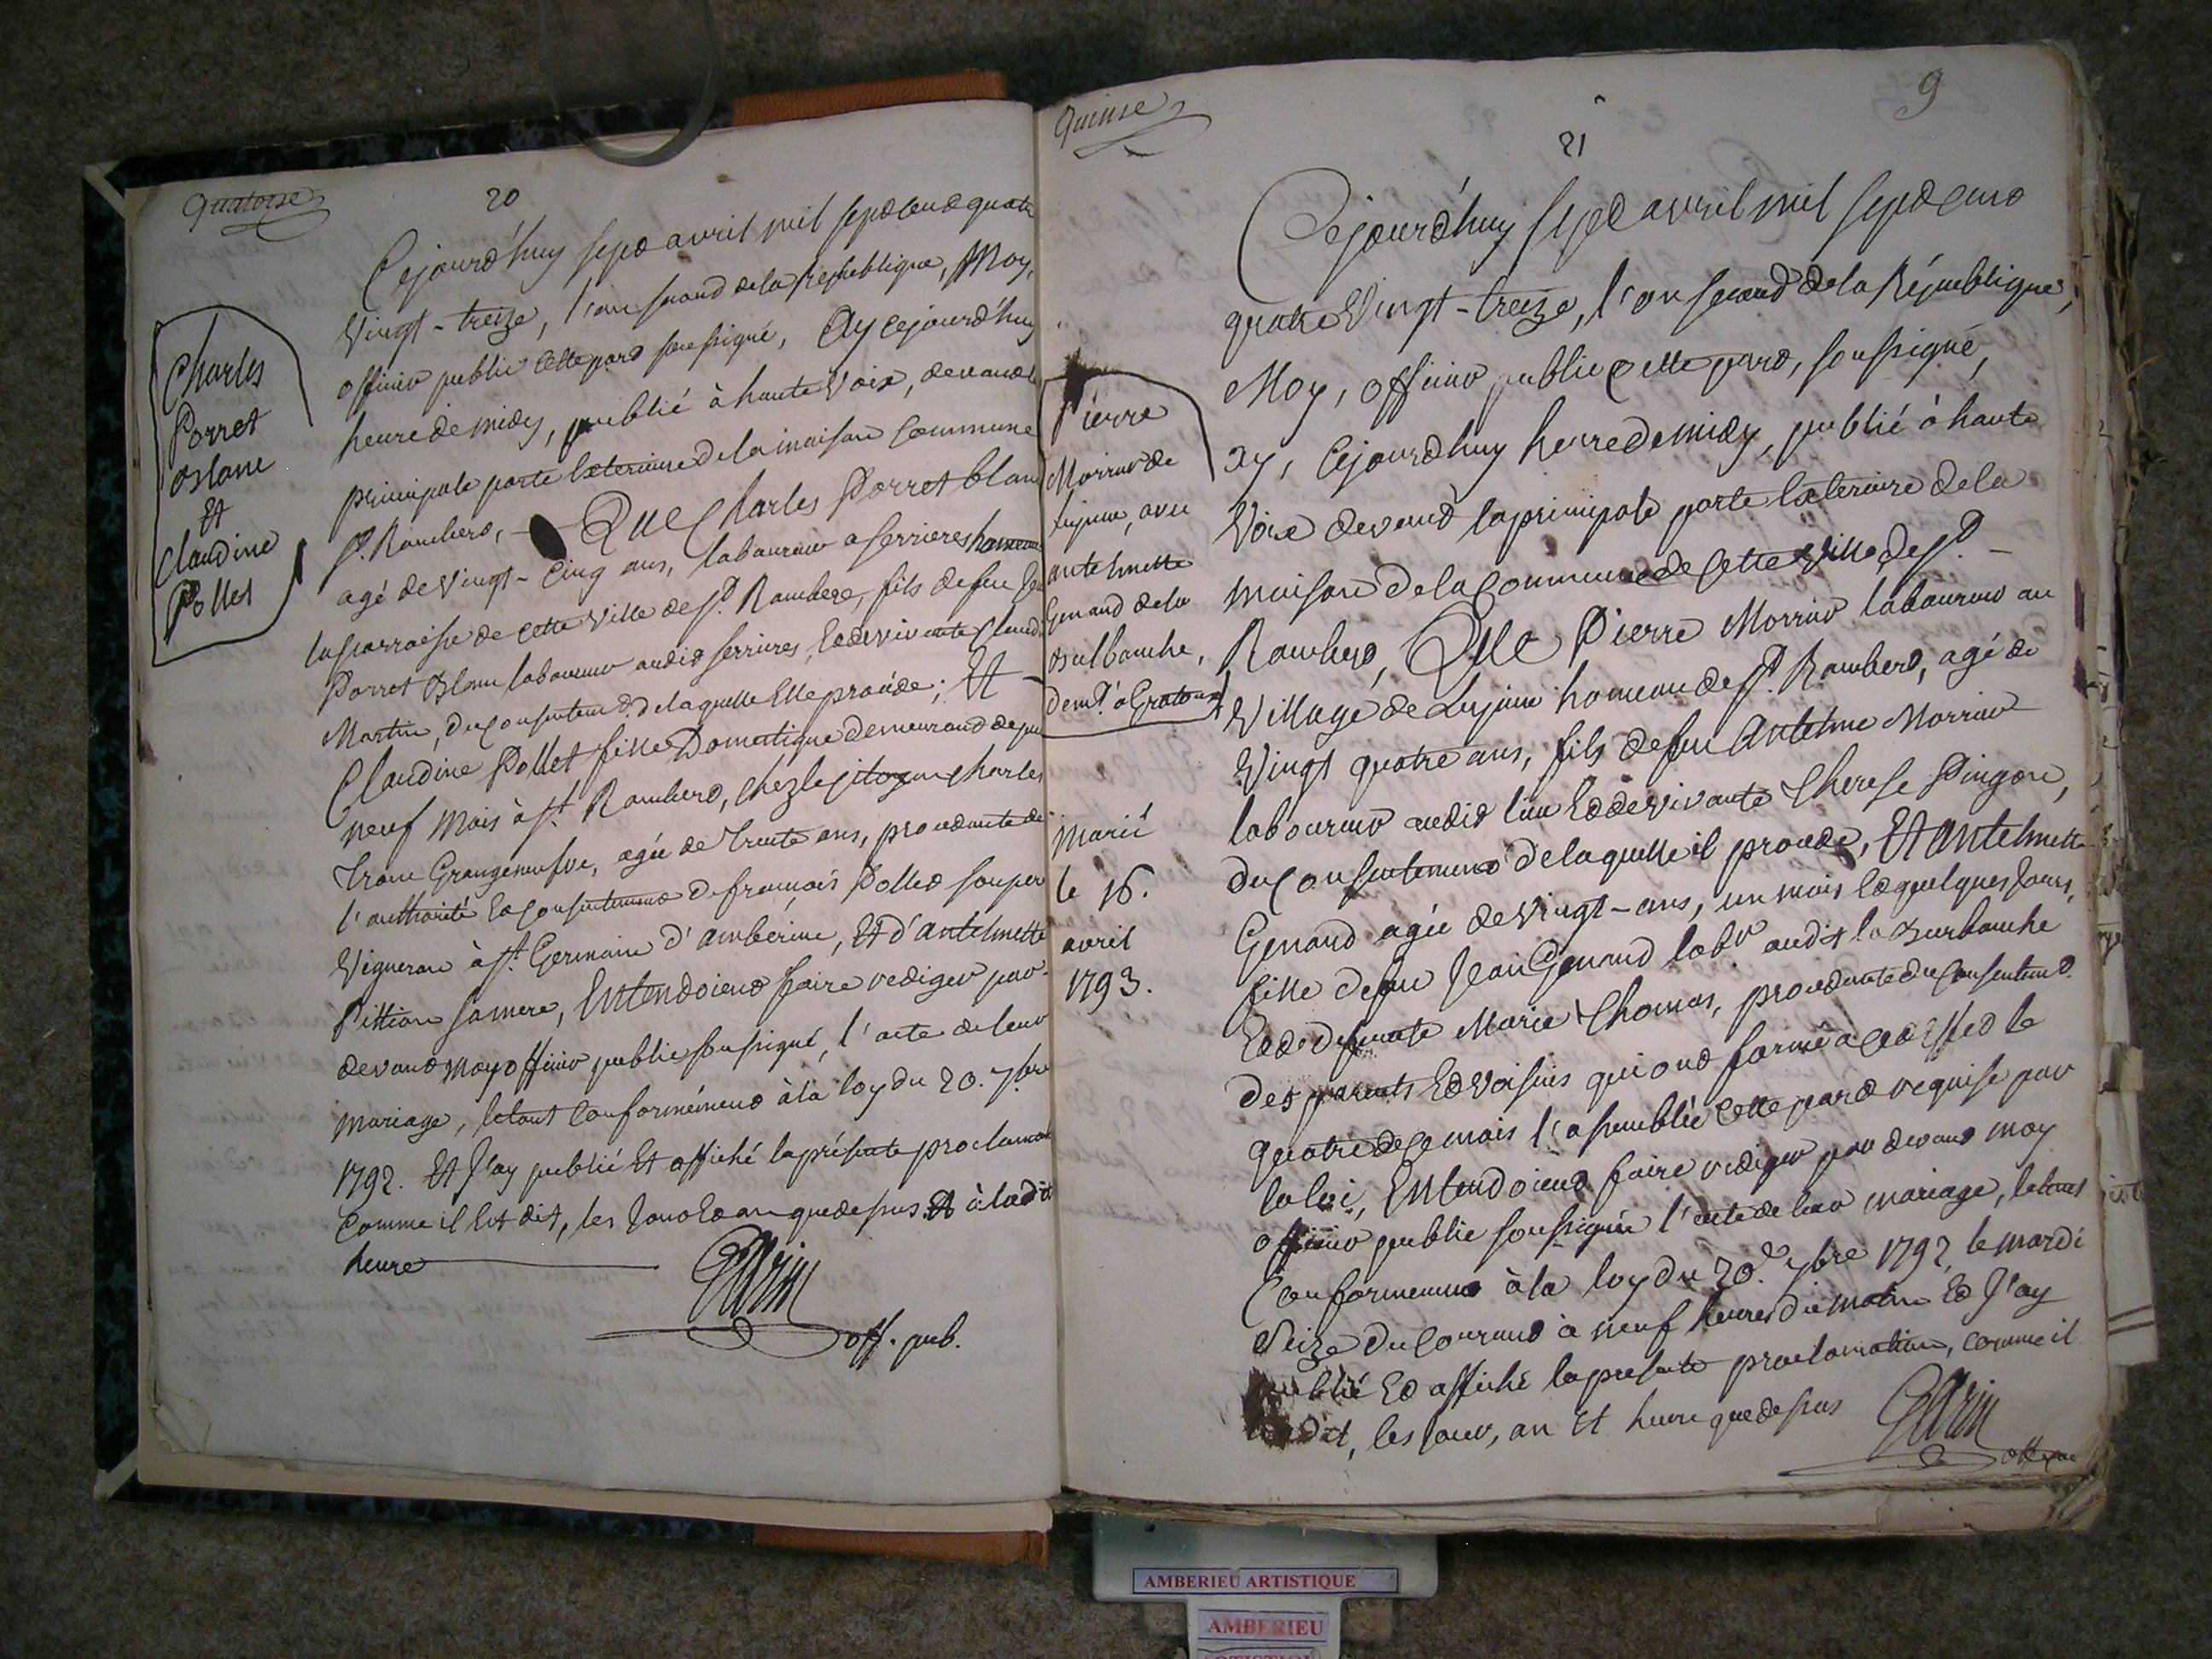 quatorse
20
Cejourd'huy sept avril mil sept cent quatre
Vingt-treize, l'an second de la Republique, Moy,
officier public cette part soussigné, Ay cejourd'huy
heure de midy, publié à haute Voix, devant la
principale porte Exterieure de la maison Commune
St. Rambert, - Que Charles Porret blanc
agé de Vingt-Cinq ans, laboureur a serrieres hameau
la parroisse de cette Ville de St. Rambert, fils de feu
Porret Blanc laboureur audit serrieres, Et de vivante Claudi
Martin, du Consentemt. de laquelle Elle procéde; Et
Claudine Pollet fille Domestique demeurant depuis
neuf Mois à St. Rambert, chez le citoyen Charles
Franc Grangeneufve, agée de Trente ans, procedante de
l'authorité Et Consentement de françois Pollet son pere
Vigneron à St. Germain d'amberieu, Et d'antelmette
Pittion sa mere, Entendoient faire rediger par
devant Moy officier public soussigné, l'acte de leur
mariage, le tout Conformément à la loy du 20. 7bre
1792. Et J'ay publié Et affiché la présente proclamaon
Comme il Est dit, les Jour Et an que dessus Et à ladite
heure
Garin
off. pub.
Charles
Porret
Blanc
Et
Claudine
Pollet
quinse
9
21
Cejourd'huy sept avril mil sept cent
quatre Vingt-treize, l'an second de la République,
Moy, officier public cette part, soussigné,
ay, Cejourd'huy heure de midy, publié à haute
Voix devant la principale porte Exterieure de la
maison de la Commune de Cette Ville de St. -
Rambert, Que Pierre Morrier laboureur au
Village de Lujeure hameau de St. Rambert, agé de
Vingt quatre ans, fils de feu Antelme Morrier
laboureur audit lieu Et de vivante Therese Pingon,
du Consentement de laquelle il procede, Et Antelmette
Genand agée de Vingt-ans, un mois Et quelques Jours,
fille de feu Jean Genand labr. audit la Burbanche
Et de defunte Marie Thomas, procedante du Consentemt.
des parents Et Voisins qui ont formé a cet Effet le
quatre de ce mois l'assemblée Cette part requise par
la loi, Entendoient faire rediger par devant moy
officier public soussigné l'acte de leur mariage, le tout
Conformement à la loy du 20.e 7bre 1792, le mardi
Seize du Courant à neuf heures du matin Et J'ay
publié Et affiché la presente proclamation, comme il
dit, les Jour, an Et heure que dessus
Garin
off. pub.
Pierre
Morrier de
lujeure, avec
antelmette
Genand de la
Burbanche,
demt. à Gratoux
Marié
le 16.
avril
1793.
AMBERIEU ARTISTIQUE
AMBERIEU
ARTISTIQUE